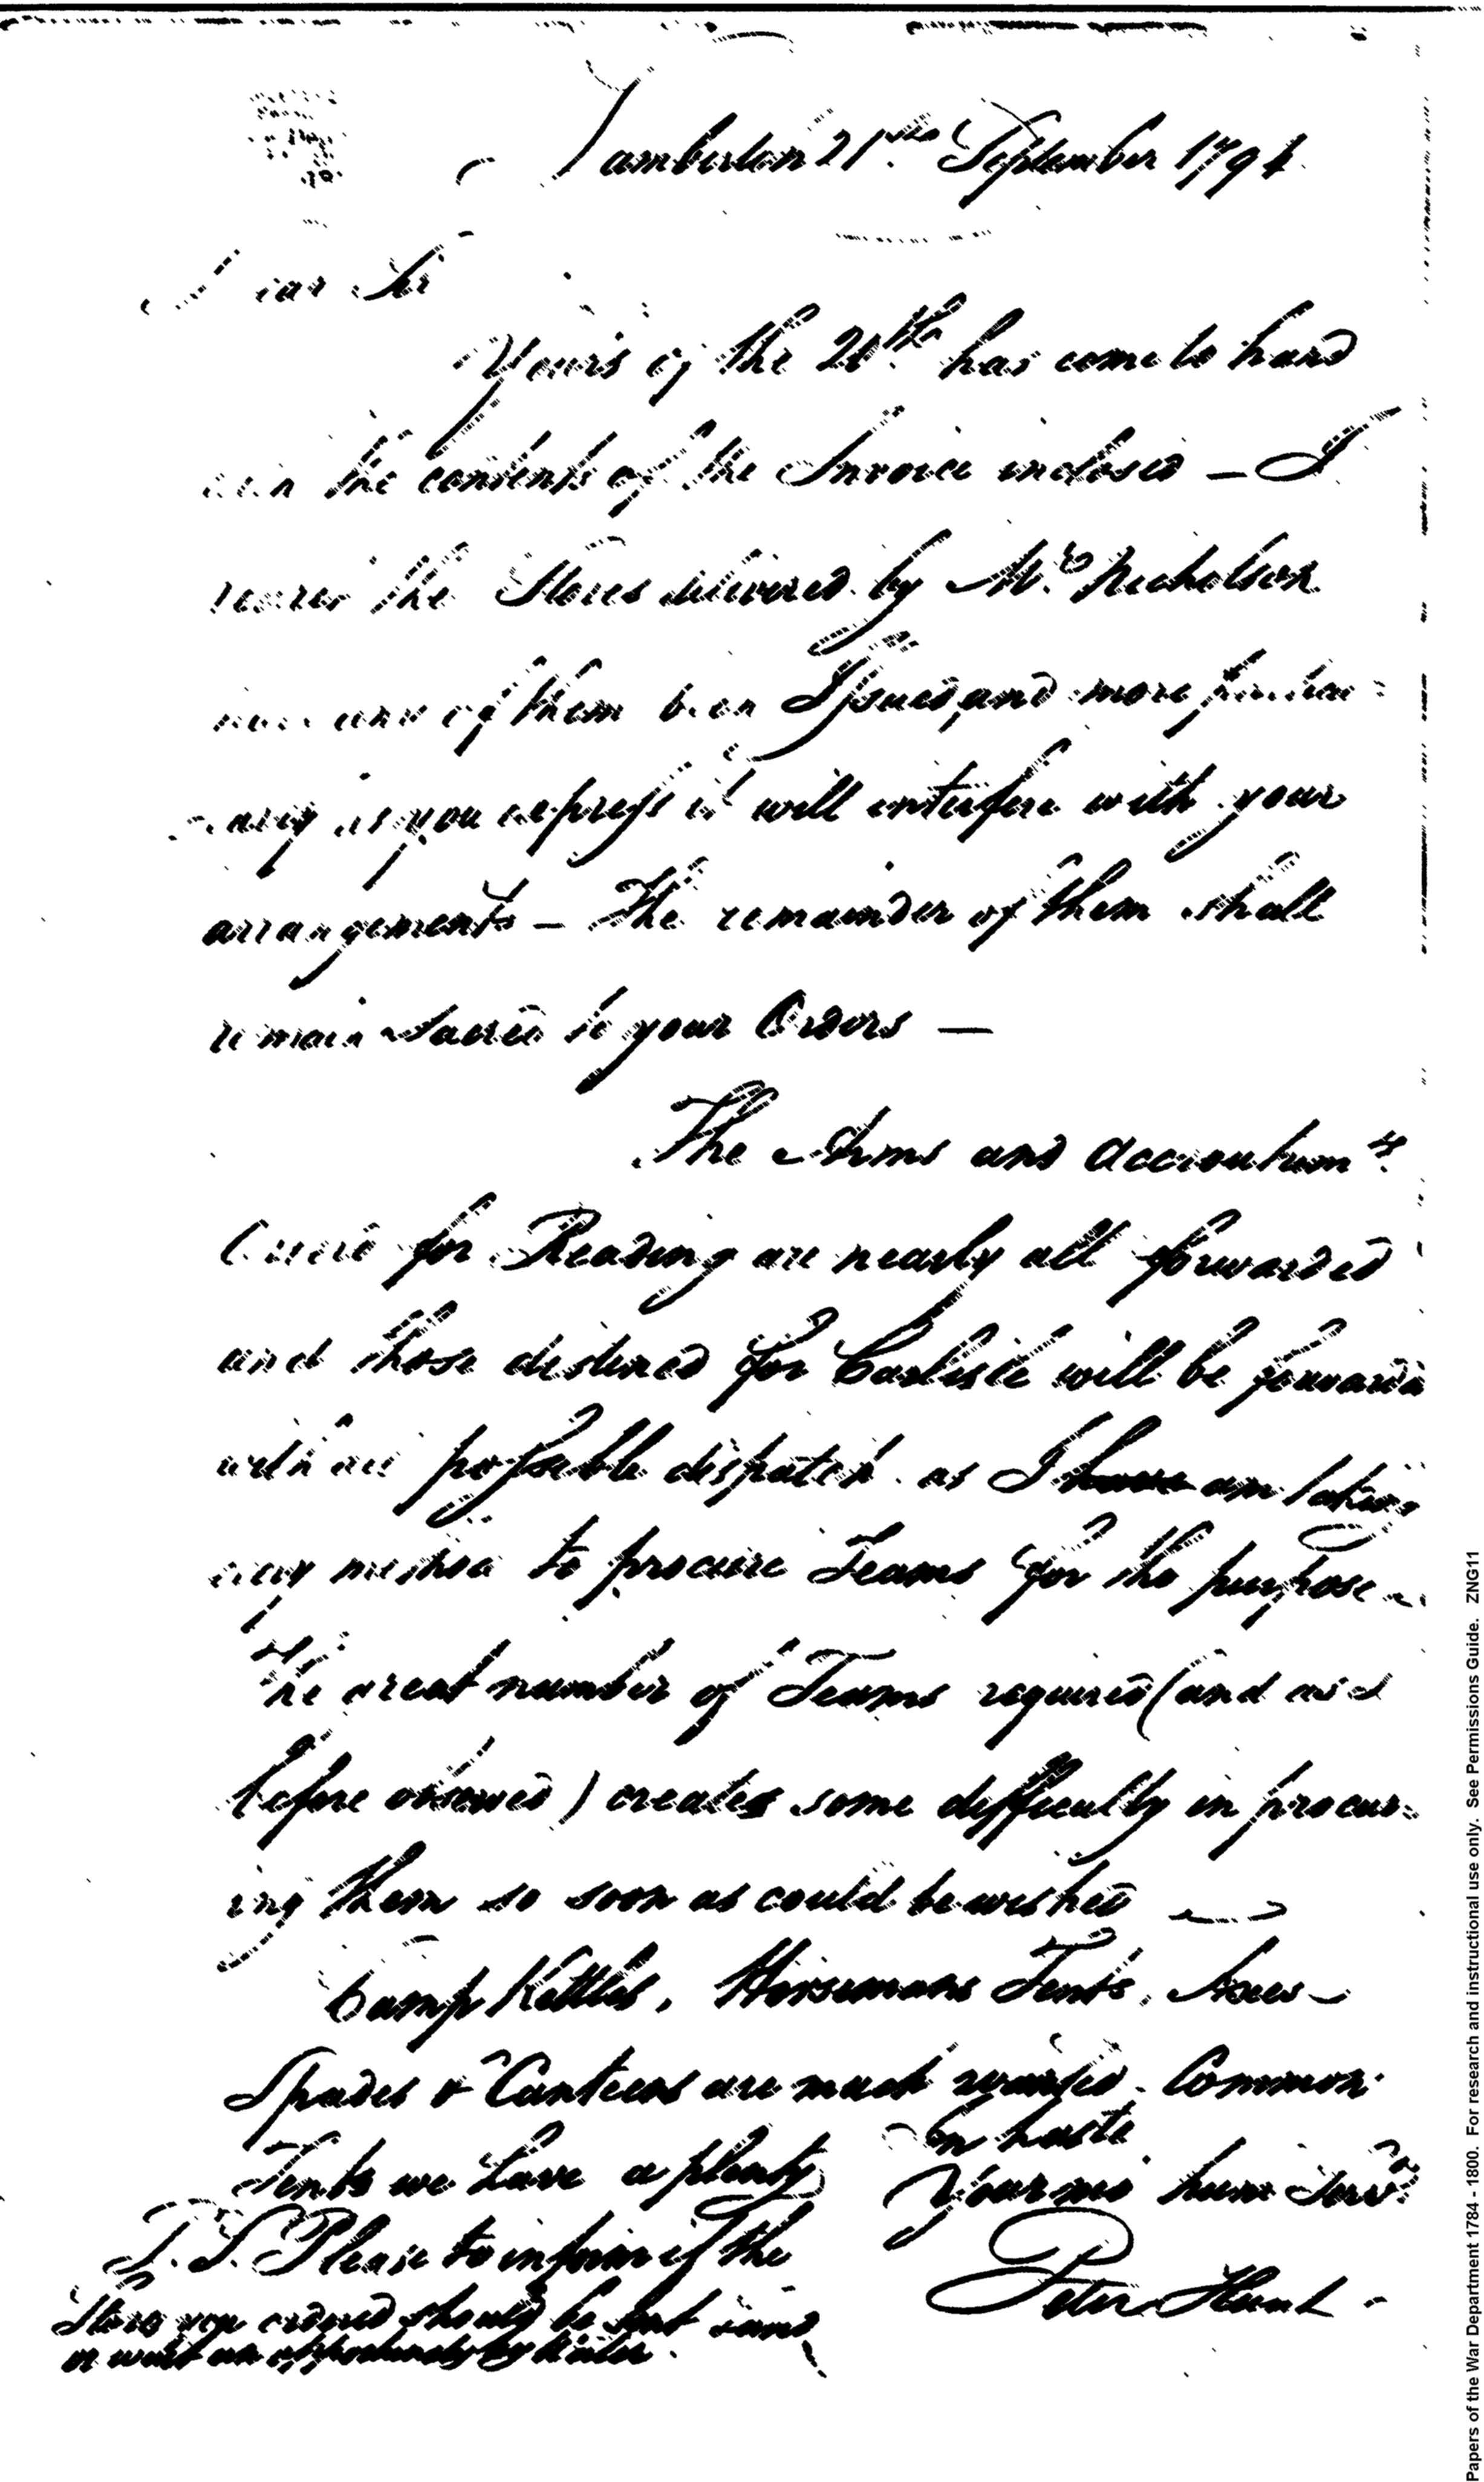 Lamberton 21st September 1794
Dear Sir
Yours of the 20th has come to hand
with the contents of the Invoice inclosed – I
the Stores delivered by Mr Nicholson
of them been Issued, and more
as you express it will interfere with your
arrangements – The remainder of them shall
remain Sacred to your Orders —
The Arms and Accoutrumts
for Reading are nearly all forwarded
and those destined for Carlisle will be forward
with all possible dispatch as I have am taking
every method to procure Teams for the purpose –
The great number of Teams required (and as I
before observed) creates some difficulty in procur=
ing them so soon as could be wished —
Camp Kettles, Horsemans Tents, Axes –
Spades & Canteens are much wanted. Common
Tents we have a plenty
In haste
Your mo hum Servt
Peter Hunt –
P.S. Please to inform if the
Stores you ordered should be sent
or wait an opportunity by Water.
Papers of the War Department 1784 - 1800. For research and instructional use only. See Permissions Guide. ZNG11